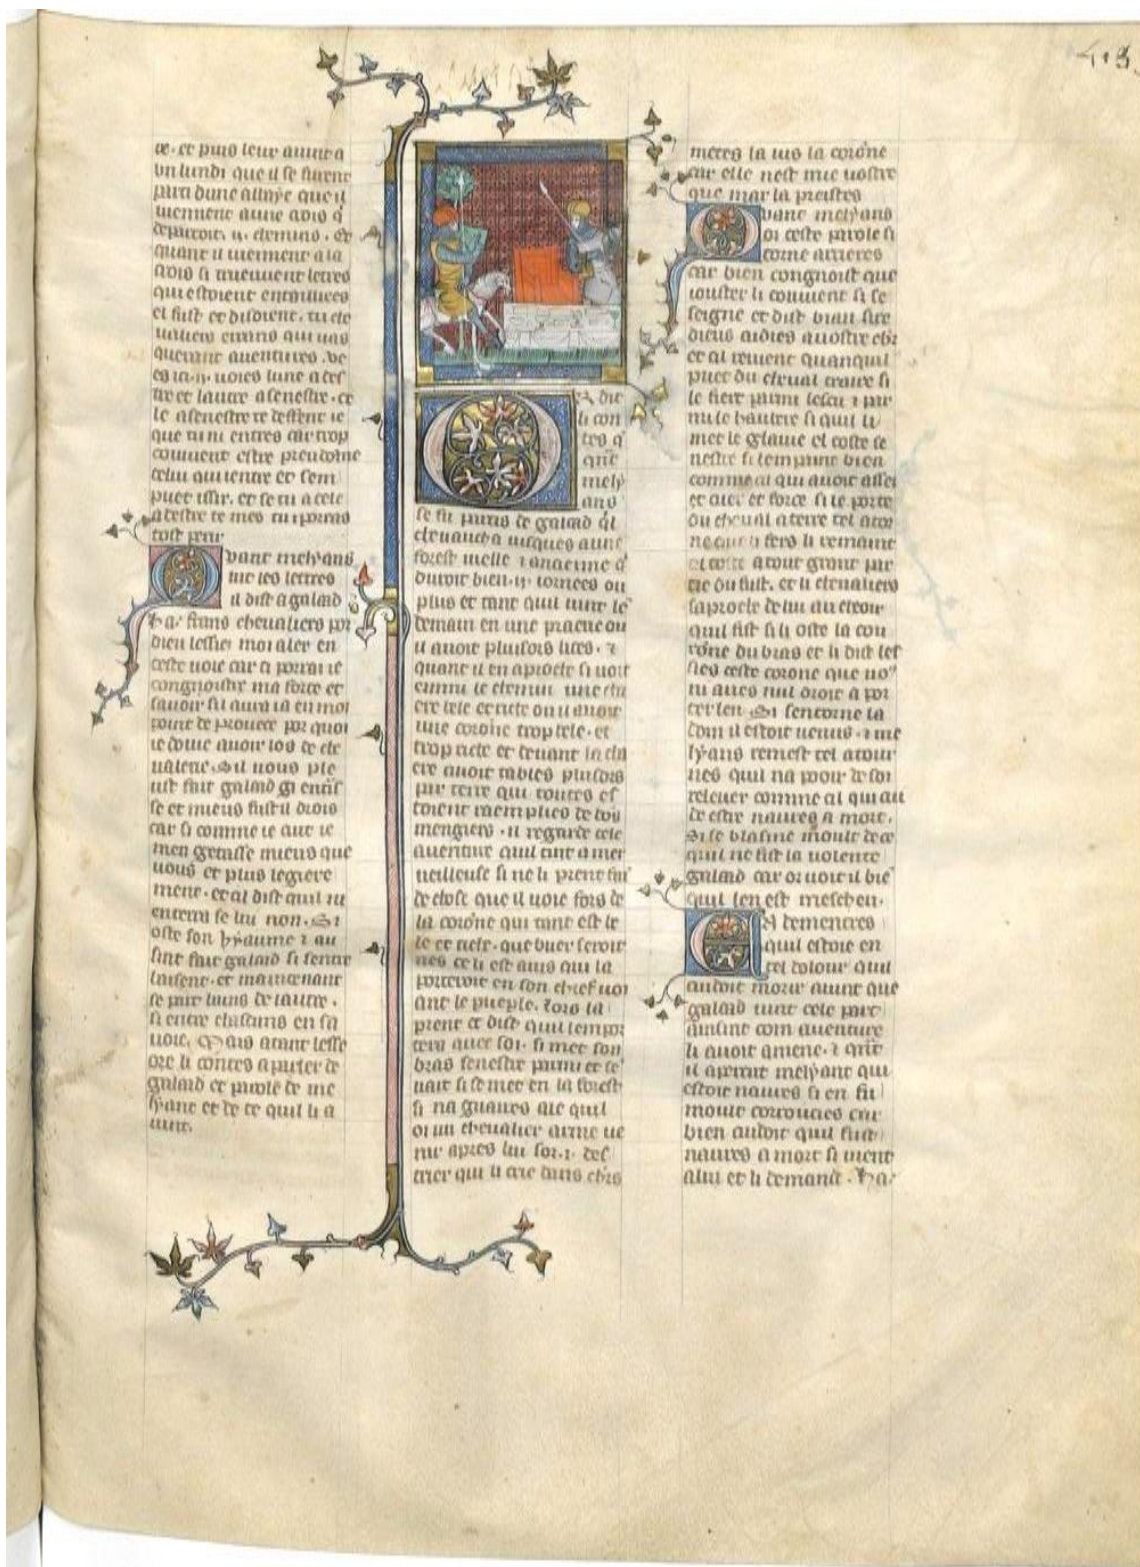 te. et puis leur auint a
vn lundi que il se furent
parti dune abaye que il
uiennent a une crois q̄
departoit .ij. chemins. Et
quant il uiennent a la
crois si trueuent letres
qui estoient entaillees
el fust et disoient. tu che
ualiers errans qui uas
querant auentures. ve
es ci .ij. uoies lune a des
tre et lautre a senestre. ce
le a senestre te deffent ie
que tu ni entres car trop
couuient estre preudome
celui qui i entre et sen
puet issir. et se tu a cele
a destre te mes tu i porras
tost perir
Quant melyans
uit les letres
il dist a galaad
ha. frans cheualiers por
dieu lessies moi aler en
ceste uoie car ci porrai ie
congnoistre ma force et
sauoir sil aura ia en moi
point de prouece por quoi
ie doiue auoir los de che
ualerie. Sil uous ple
ust fait galaad gi entras
se et mieus fust il drois
car si comme ie cuit ie
men getasse mieus que
uous et plus legiere
ment. et cil dist quil ni
enterra se lui non. Si
oste son hyaume ⁊ au
sint fait galaad si sentre
baisent. et maintenant
se part luns de lautre.
si entre chascuns en sa
uoie. Mais atant lesse
ore li contes a parler de
galaad et parole de me
lyant et de ce quil li a
uint.
Or dit
li con
tes q̄
q̄nt
mely
ans
se fu partis de galaad q̄l
cheuaucha iusques a une
forest uielle ⁊ ancienne q̄
duroit bien .ij. iornees ou
plus et tant quil uint le
demain en une praerie ou
il auoit plusors lices. ⁊
quant il en aproche si uoit
enmi le chemin une cha
ere bele et riche ou il auoit
une corone trop bele. et
trop riche et deuant la cha
ere auoit tables plusors
par terre qui toutes es
toient raemplies de bons
mengiers. il regarde cele
auenture quil tint a mer
ueilleuse si ne li prent fai
de chose que il uoie fors de
la corone qui tant est be
le et riche. que buer seroit
nes ce li est auis qui la
porteroit en son chief uoi
ant le pueple. lors la
prent et dist quil lempor
tera auec soi. si met son
bras senestre parmi et se
uait si se met en la forest
si na guaires ale quil
oi un cheualier arme ue
nir apres lui sor .i. des
trier qui li crie dans chr̄s
metes la ius la corone
car elle nest mie uostre
que mar la preistes
Quant melyans
oi ceste parole si
torne arrieres
car bien congnoist que
iouster li couuient si se
seigne et dist biau sire
dieus aidies a uostre chr̄
et cil reuient quanquil
puet du cheual traire si
le fiert parmi lescu ⁊ par
mi le hauberc si quil li
met le glaiue el coste se
nestre si lempaint bien
comme cil qui auoit asses
et cuer et force si le porte
du cheual a terre tel ator
ne que li fers li remaint
el coste a tout grant par
tie du fust. et li cheualiers
saproche de lui au chaoir
quil fist si li oste la cou
rone du bras et li dist les
sies ceste corone que uous
ni aues nul droit a por
ter len. Si sen torne la
dont il estoit uenus. ⁊ me
lyans remest tel atour
nes quil na pooir de soi
releuer comme cil qui cui
de estre naures a mort.
Si se blasme moult de ce
quil ne fist la uolente
galaad car or uoit il bie̅
quil len est mescheu.
Endementres
quil estoit en
tel dolour quil
cuidoit morir auint que
galaad uint cele part
ainsint com auenture
li auoit amene. ⁊ q̄nt
il apercut melyant qui
estoit naures si en fu
moult corrouciés car
bien cuidoit quil fust
naures a mort si uient
a lui et li demande. ha.